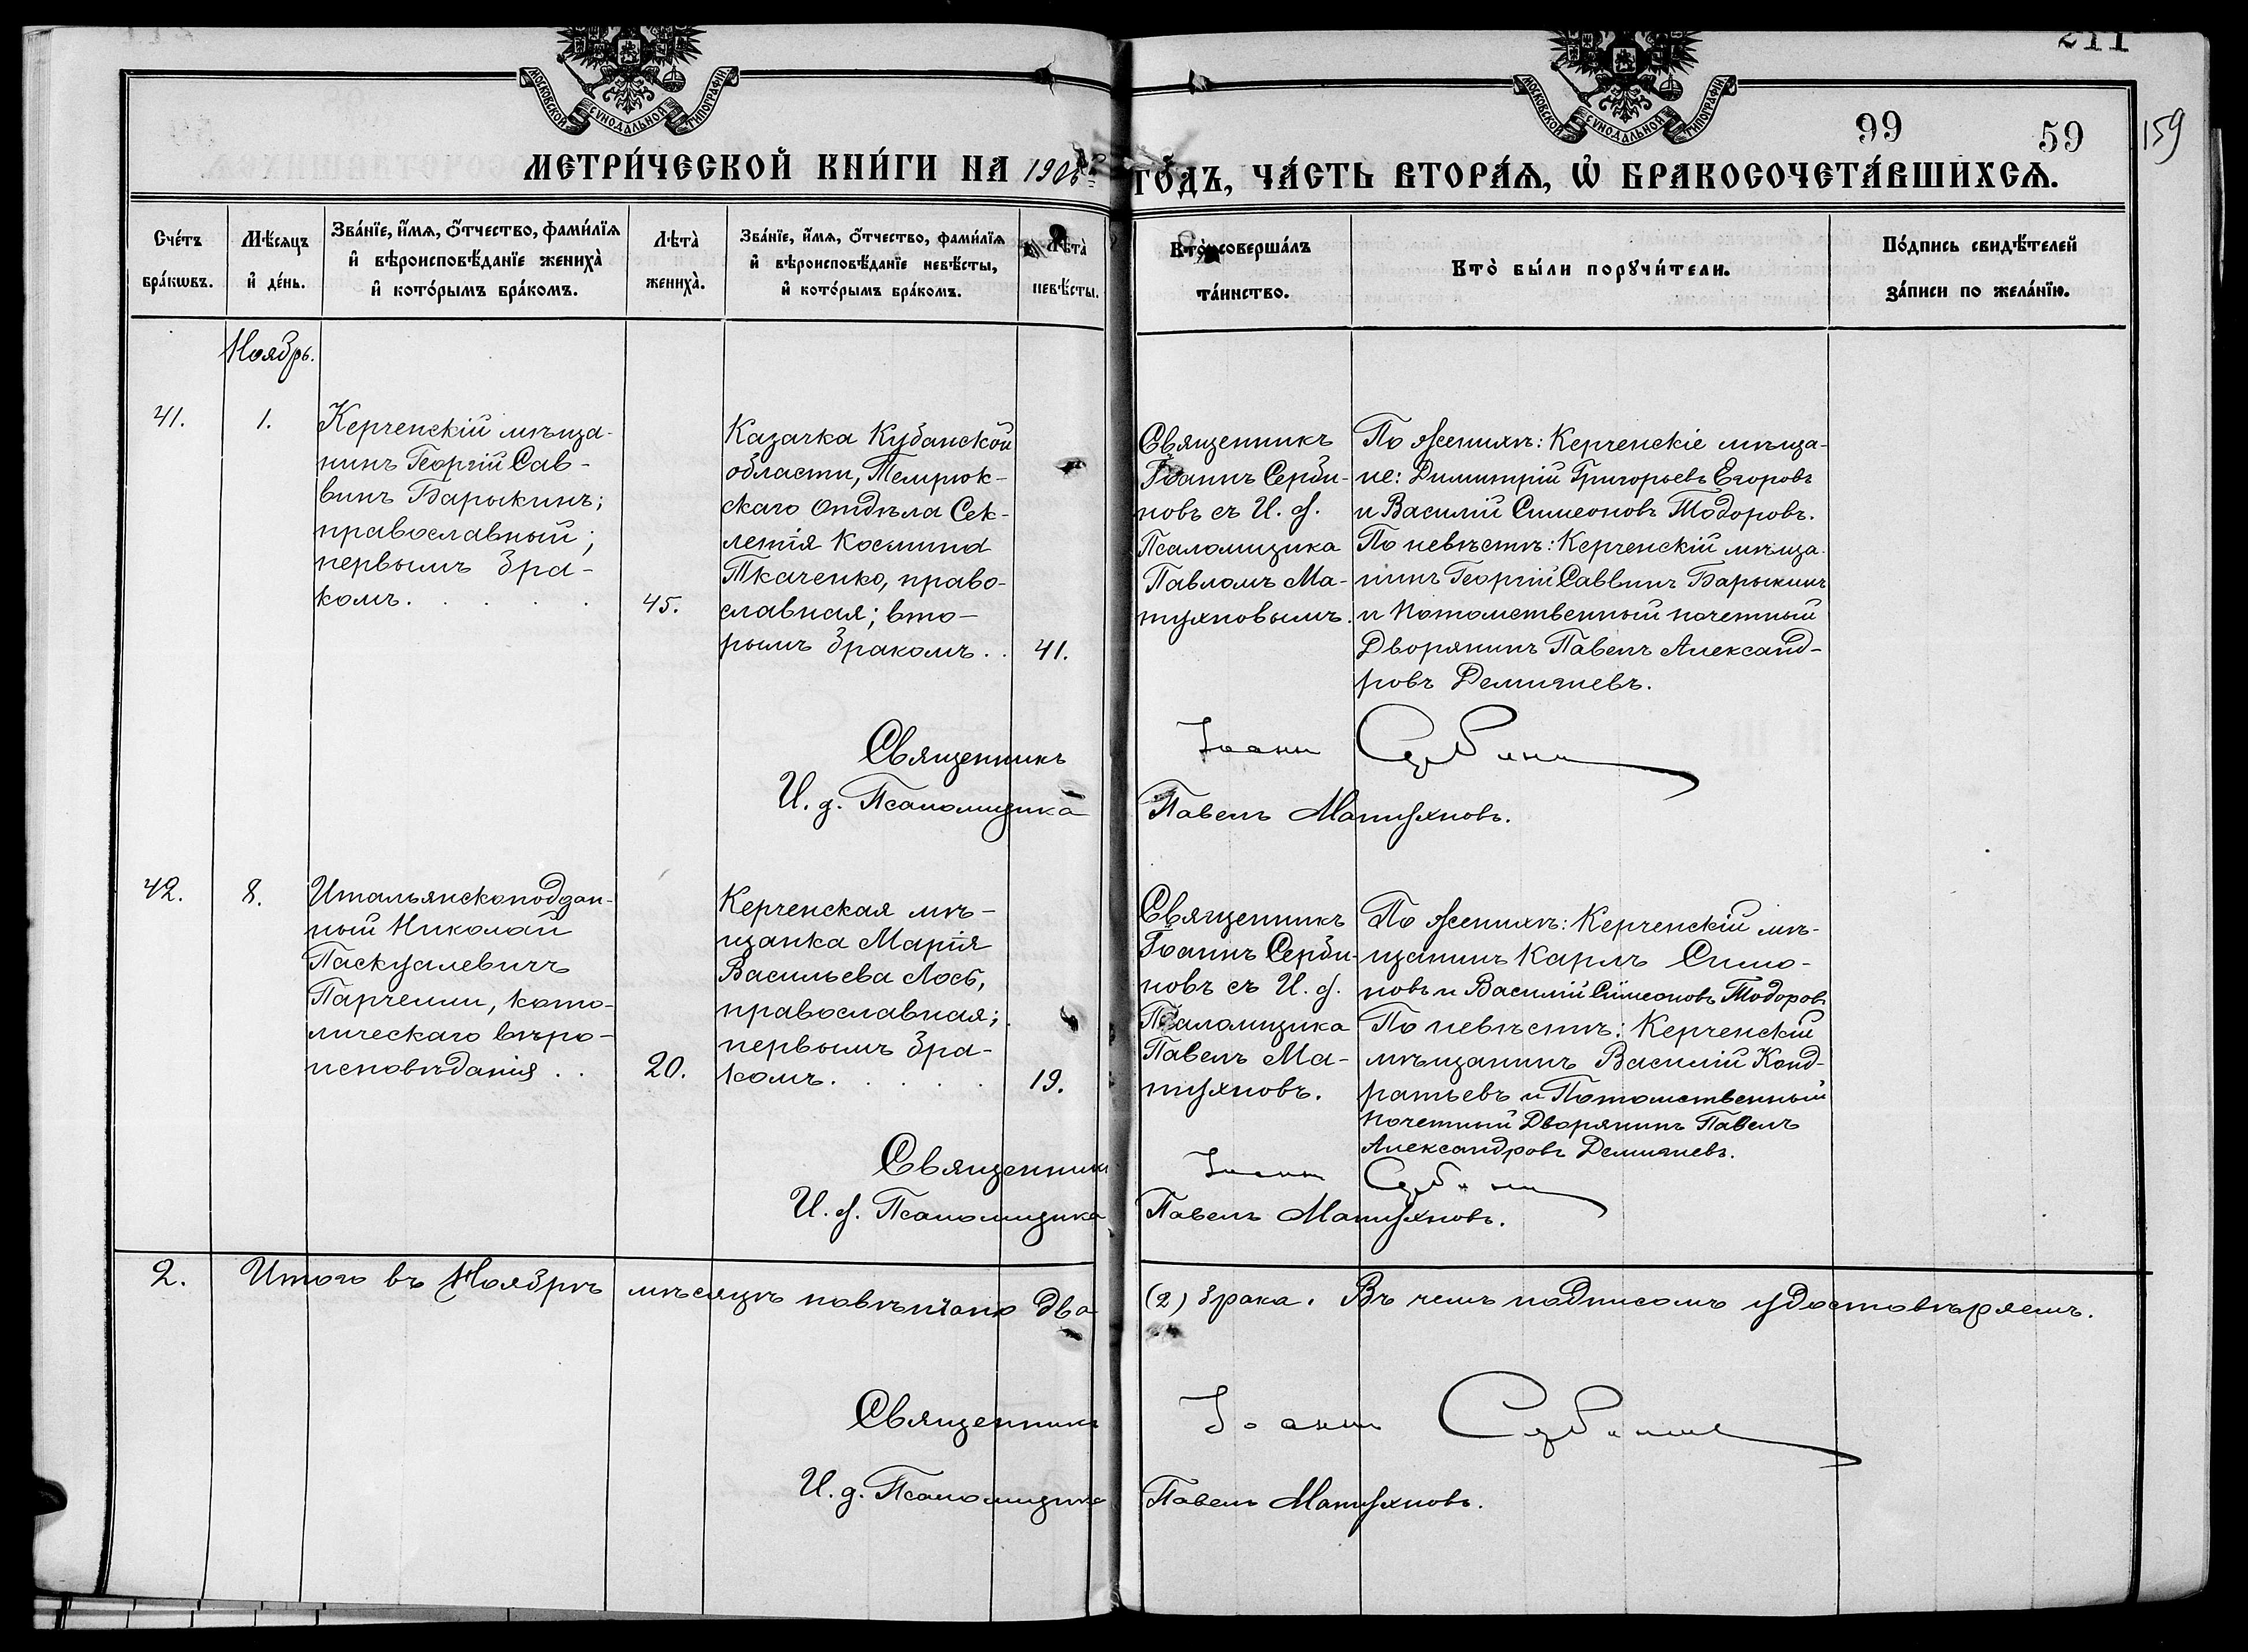 МОСКОВСКОЙ СУНОДАЛЬНОЙ ТИПОГРАФІИ
МОСКОВСКОЙ СУНОДАЛЬНОЙ ТИПОГРАФІИ
211
99
59
159
МЕТРИ́ЧЕСКОЙ КНИ́ГИ НА
ГО́ДЪ, ЧА́СТЬ ВТОРА́Ѧ, Ѡ҆ БРАКОСОЧЕТА́ВШИХСѦ.
Сче́тъ
бра́кѡвъ.
Мѣ́сяцъ
и҆ де́нь.
Зва́нїе, и҆́мѧ, ѻ҆́тчество, фами́лїѧ
и҆ вѣроисповѣ́данїе женихà
и҆ кото́рымъ бра́комъ.
Лѣтà
женихà.
Зва́нїе, и҆́мѧ, ѻ҆́тчество, фами́лїѧ
и҆ вѣроисповѣ́данїе невѣ́сты,
и҆ кото́рымъ бра́комъ.
Лѣтà
невѣ́сты.
Ктò соверша́лъ
та́инство.
Ктò бы́ли порꙋчи́тели.
По́дпись свидѣ́телей
за́писи по жела́нїю.
Ноябрь.
41.
1.
Керченскій мѣща-
нинъ Георгій Сав-
винъ Барыкинъ;
православный;
первымъ бра-
комъ. . . . .
45.
Казачка Кубанской
области, Темрюк-
скаго Отдѣла Сек-
летія Космина
Ткаченко, право-
славная; вто-
рымъ бракомъ. .
41.
Священникъ
Іоаннъ Серби-
новъ съ И. д.
Псаломщика
Павломъ Ма-
тухновымъ.
По Женихѣ: Керченскіе мѣща-
не: Димитрій Григорьевъ Егоровъ
и Василій Симеоновъ Тодоровъ.
По невѣстѣ: Керченскій мѣща-
нинъ Георгій Саввинъ Барыкинъ
и Потомственный почетный
Дворянинъ Павелъ Александ-
ровъ Демяневъ.
Священникъ Іоаннъ Сербиновъ
И. д. Псаломщика Павелъ Матухновъ.
42.
8.
Итальянскоподдан-
ный Николай
Паскуалевичъ
Парчелли, като-
лическаго вѣро-
исповѣданія . .
20.
Керченская мѣ-
щанка Марія
Васильева Лось,
православная;
первымъ бра-
комъ. . . . .
19.
Священникъ
Іоаннъ Серби-
новъ съ И. д.
Псаломщика
Павелъ Ма-
тухновъ.
По Женихѣ: Керченскій мѣ-
щанинъ Карлъ Симо-
новъ и Василій Симеоновъ Тодоровъ
По невѣстѣ: Керченскій
мѣщанинъ Василій Конд-
ратьевъ и Потомственный
почетный Дворянинъ Павелъ
Александровъ Демяневъ.
Священникъ Іоаннъ Сербиновъ
И. д. Псаломщика Павелъ Матухновъ.
2. Итого въ Ноябрѣ мѣсяцѣ повѣнчано два (2) брака. Въ чемъ подписомъ удостовѣряемъ.
Священникъ Іоаннъ Сербиновъ
И. д. Псаломщика Павелъ Матухновъ.